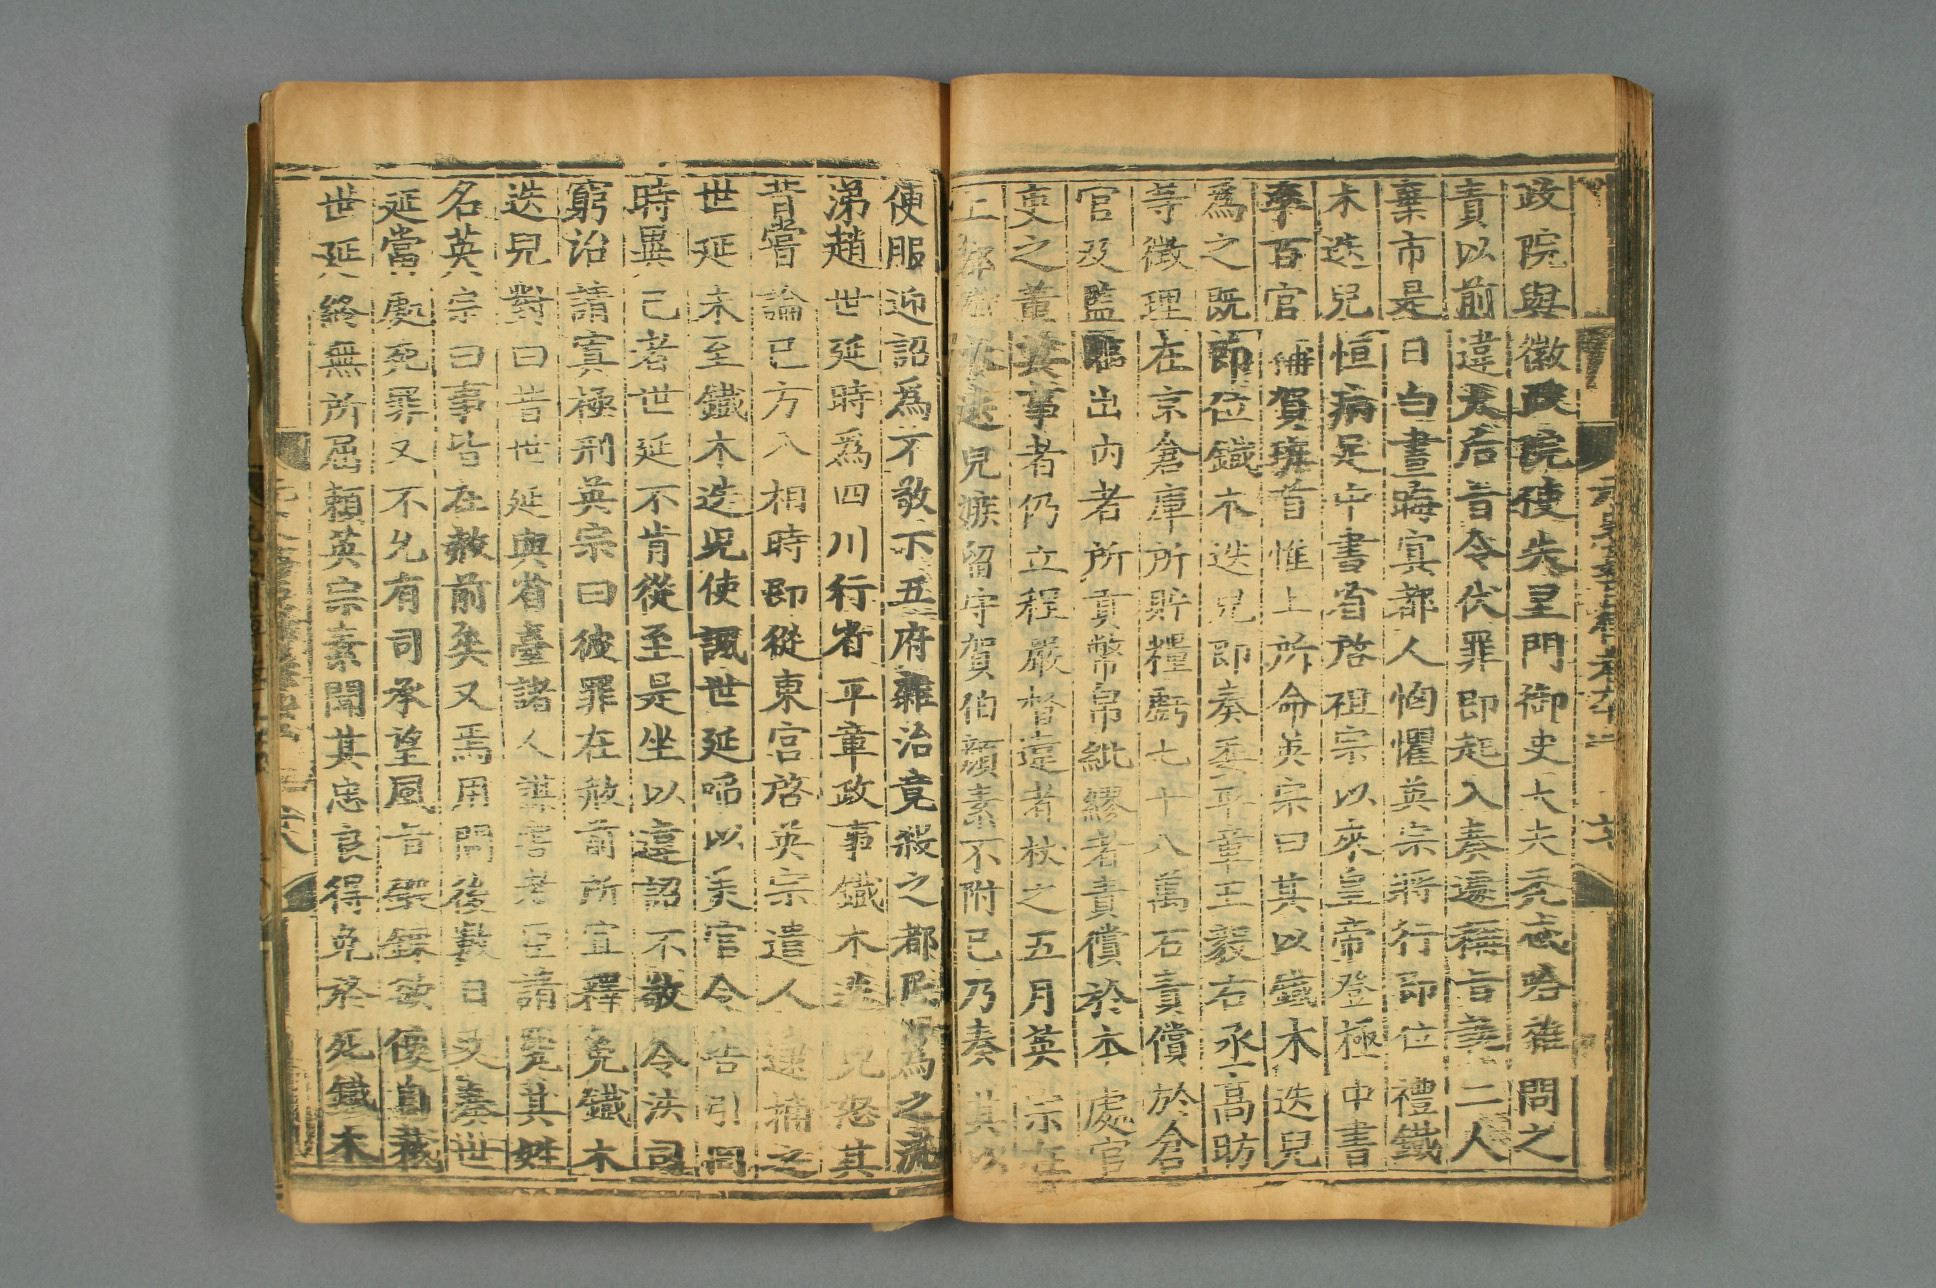 政院與徽政院使失里門御史大夫禿忒哈雜問之
責以前違太后旨令伏罪即起入奏遽稱旨執二人
棄市是日白晝晦冥都人恟懼英宗將行即位禮鐵
木迭兒恒病足中書省啓祖宗以來皇帝登極中書
率百官稱賀班首惟上所命英宗曰其以鐵木迭兒
爲之既即位鐵木迭兒即奏委平章王毅右丞高昉
等徵理在京倉庫所貯糧虧七十八萬石責償於倉
官及監臨出內者所貢幣帛紕繆者責償於本處官
吏之董其事者仍立程嚴督違者杖之五月英宗在
上都鐵木迭兒嫉留守賀伯顏素不附己乃奏其以
便服迎詔爲不敬下五府雜治竟殺之都民爲之流
涕趙世延時爲四川行省平章政事鐵木迭兒怒其
昔嘗論己方入相時即從東宮啓英宗遣人逮捕之
世延未至鐵木迭兒使諷世延啗以美官令告引同
時異己者世延不肯從至是坐以違詔不敬令法司
窮治請寘極刑英宗曰彼罪在赦前所宜釋免鐵木
迭兒對曰昔世延與省臺諸人謀害老臣請究其姓
名英宗曰事皆在赦前矣又焉用問後數日又奏世
延當處死罪又不允有司承望風旨鍛鍊欲使自裁
世延終無所屈賴英宗素聞其忠良得免於死鐵木